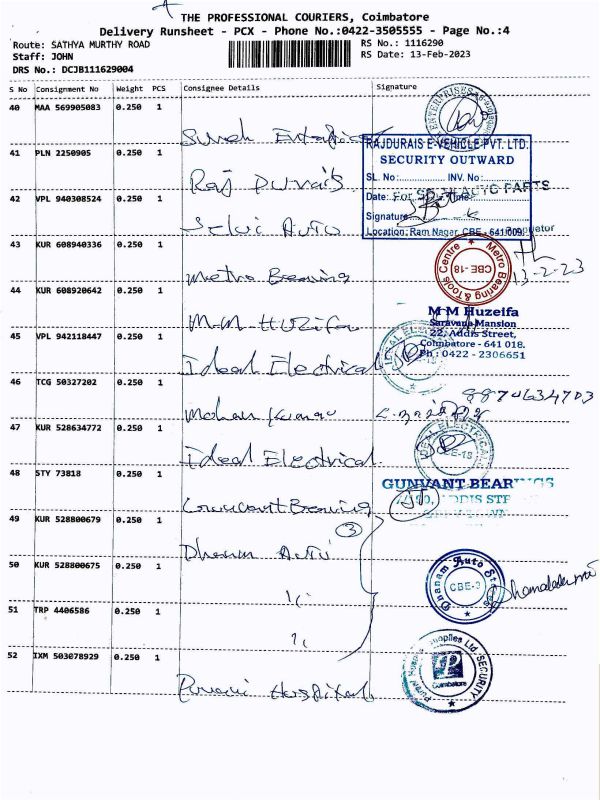 THE PROFESSIONAL COURIERS, Coimbatore
Delivery Runsheet - PCX - Phone No.:0422-3505555 - Page No.:4
Route: SATHYA MURTHY ROAD
Staff: JOHN
DRS No.: DCJB111629004
RS No.: 1116290
RS Date: 13-Feb-2023
S No Consignment No Weight PCS Consignee Details Signature
40 MAA 569905083 0.250 1
ENTERPRISES
41 PLN 2250905 0.250 1 Raj Durais
RAJDURAIS E-VEHICLE PVT. LTD.
SECURITY OUTWARD
SL. No: INV. No:
Date: Time:
Signature
Location: Ram Nagar, CBE - 641 009.
42 VPL 940308524 0.250 1 Selvi Auto
AUTO PARTS
43 KUR 608940336 0.250 1 Metro Bearing
Metro Bearing & Tools Centre
CBE-18
13-2-23
44 KUR 608920642 0.250 1 M.M HUZifa
M M Huzeifa
Saravana Mansion
22, Addis Street,
Coimbatore - 641 018.
Ph : 0422 - 2306651
45 VPL 942118447 0.250 1 Ideal Electrical
IDEAL ELECTRICALS
46 TCG 50327202 0.250 1 Mohan Kumar
8870634703
47 KUR 528634772 0.250 1 Ideal Electrical
IDEAL ELECTRICALS
CBE-18
48 STY 73818 0.250 1 Bearing
GUNVANT BEARINGS
49 KUR 528800679 0.250 1 Auto
3
50 KUR 528800675 0.250 1 "
Dhanam Auto Stores
CBE-3
51 TRP 4406586 0.250 1 "
52 IXM 503078929 0.250 1 Hospital
Supplies Ltd SECURITY
Coimbatore